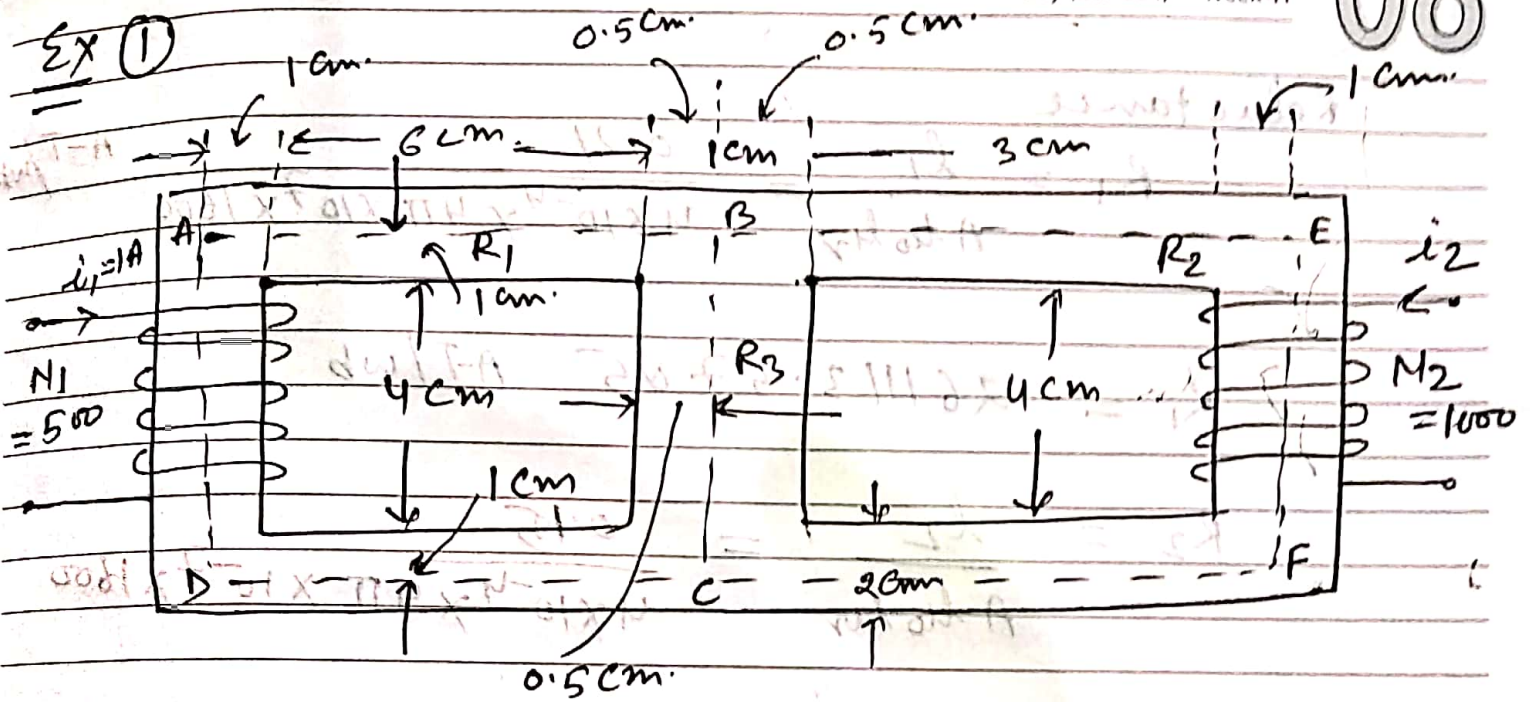 Ex ①
0.5 cm.
0.5 cm.
1 cm.
1 cm.
6 cm.
1 cm
3 cm
A
B
E
R1
R2
i1=1A
i2
1 cm.
N1
= 500
4 cm
R3
4 cm
N2
= 1000
1 cm
D
C
2 cm
F
0.5 cm.